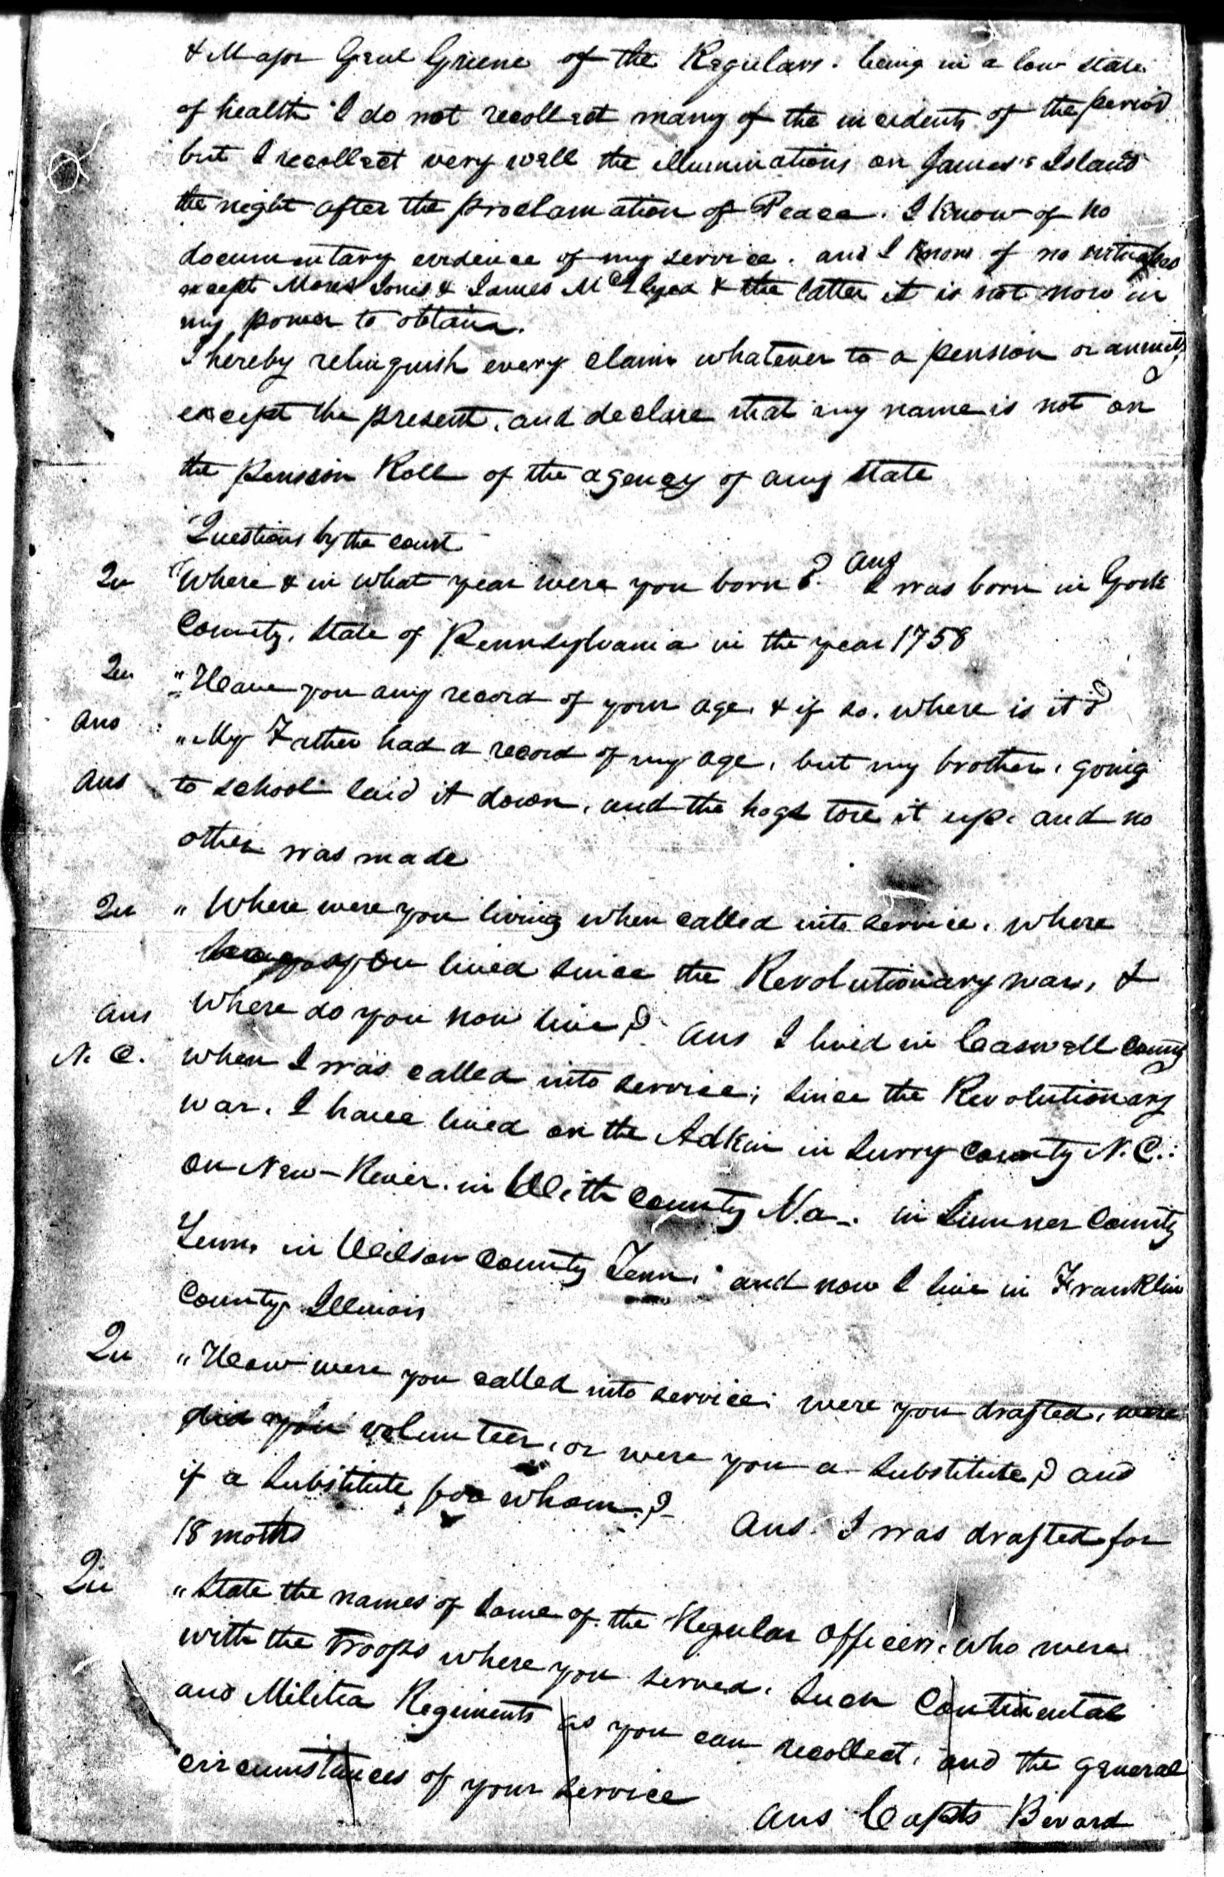 & Major Genl Griene of the Regulars. being in a low state
of health I do not recollect many of the incidents of the period
but I recollect very well the illuminations on James's Island
the night after the proclamation of Peace. I know of no
documentary evidence of my service. and I know of no witnesses
except & James & the latter it is not now in
my power to obtain.
I hereby relinquish every claim whatever to a pension or annuity
except the present, and declare that my name is not on
the Pension Roll of the agency of any state
Questions by the court
Qu Where & in what year were you born? Ans I was born in York
County. State of Pennsylvania in the year 1758
Qu "Have you any record of your age. & if so. where is it?
Ans "My Father had a record of my age, but my brother, going
Ans to school laid it down, and the hogs tore it up. and no
other was made
Qu " Where were you living when called into service. where
you lived since the Revolutionary war, &
Ans where do you now live? Ans I lived in Caswell County
N. C. when I was called into service; since the Revolutionary
war. I have lived on the Adkin in Surry County N. C.:
on New-River. in With County Va. in Sumner County
Tenn. in Wilson County Tenn. and now I live in Franklin
County Illinois
Qu "How were you called into service; were you drafted, were
did you volunteer, or were you a Substitute? and
if a Substitute for whom.? Ans. I was drafted for
18 moths
Qu "State the names of some of the Regular officers, who were
with the Troops where you served. Such Continental
and Militia Regiments as you can recollect, and the general
circumstances of your service
Ans Capts Bevard